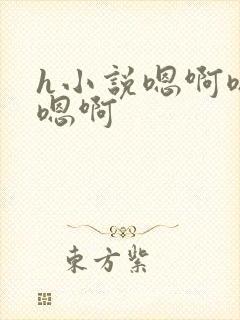 h小説嗯啊
嗯啊
東方紫